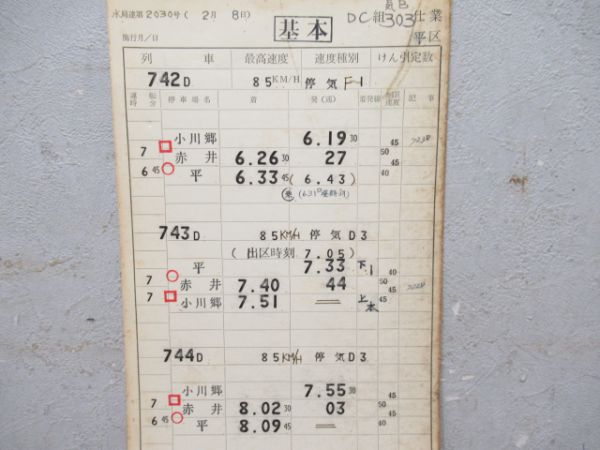 水局達第2030号( 2月 8日)
基本
気B
DC組303仕業
施行月/日
平区
列 車 最高速度 速度種別 けん引定数
742D 85KM/H 停気F1
運転時分 停車場名 着 発(通) 着発線 制限速度 記事
小川郷 6.19 30
7 赤井 6.26 30 27 50 45
6 45 平 6.33 45 (6.43) 40
743D 85KM/H 停気D3
(出区時刻 7.05)
平 7.33 下1 40
7 赤井 7.40 44 50 45
7 小川郷 7.51 上本 45
744D 85KM/H 停気D3
小川郷 7.55 30 45
7 赤井 8.02 30 03 50 45
6 45 平 8.09 45 40